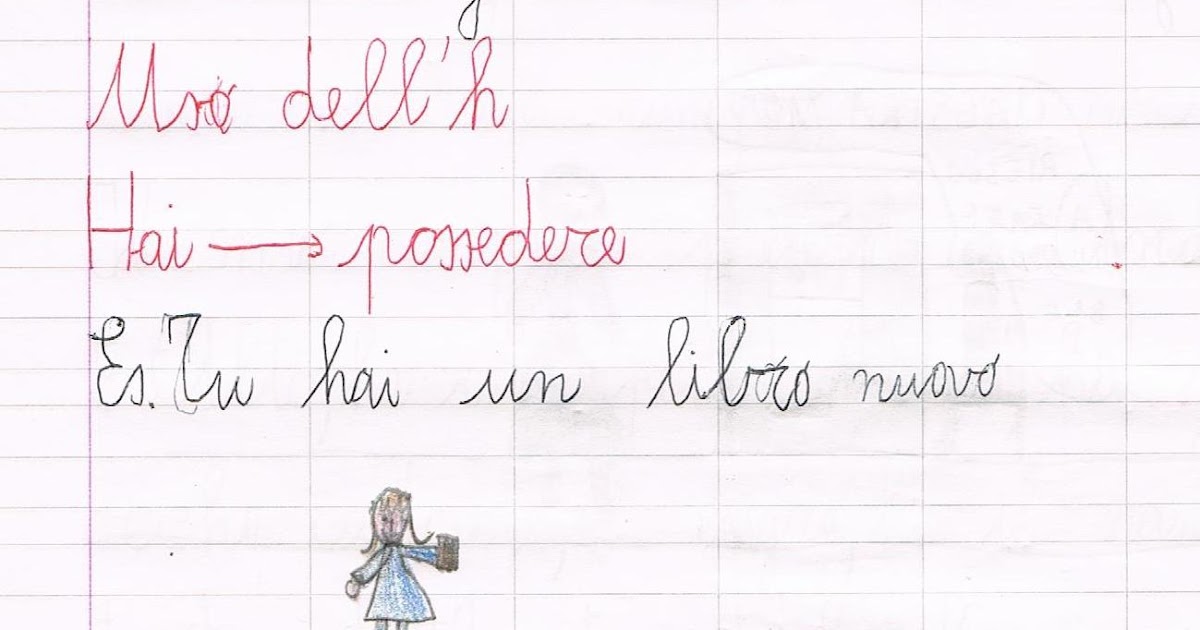 Uso dell'h
Hai → possedere
Es. Tu hai un libro nuovo